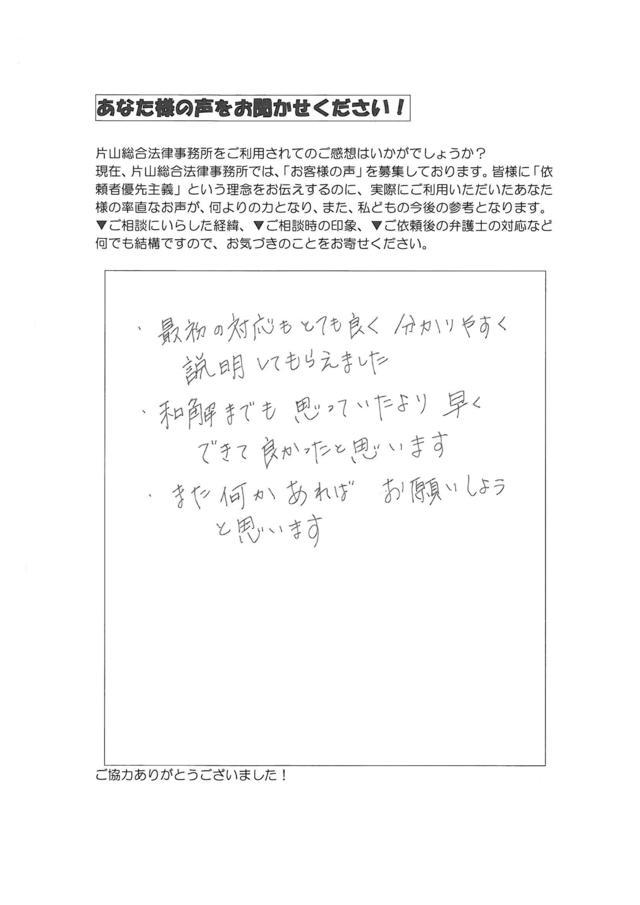 あなた様の声をお聞かせください！
片山総合法律事務所をご利用されてのご感想はいかがでしょうか？
現在、片山総合法律事務所では、「お客様の声」を募集しております。皆様に「依
頼者優先主義」という理念をお伝えするのに、実際にご利用いただいたあなた
様の率直なお声が、何よりの力となり、また、私どもの今後の参考となります。
▼ご相談にいらした経緯、▼ご相談時の印象、▼ご依頼後の弁護士の対応など
何でも結構ですので、お気づきのことをお寄せください。
・最初の対応もとても良く 分かりやすく
説明してもらえました
・和解までも 思っていたより 早く
できて良かったと思います
・また何かあれば お願いしよう
と思います
ご協力ありがとうございました！